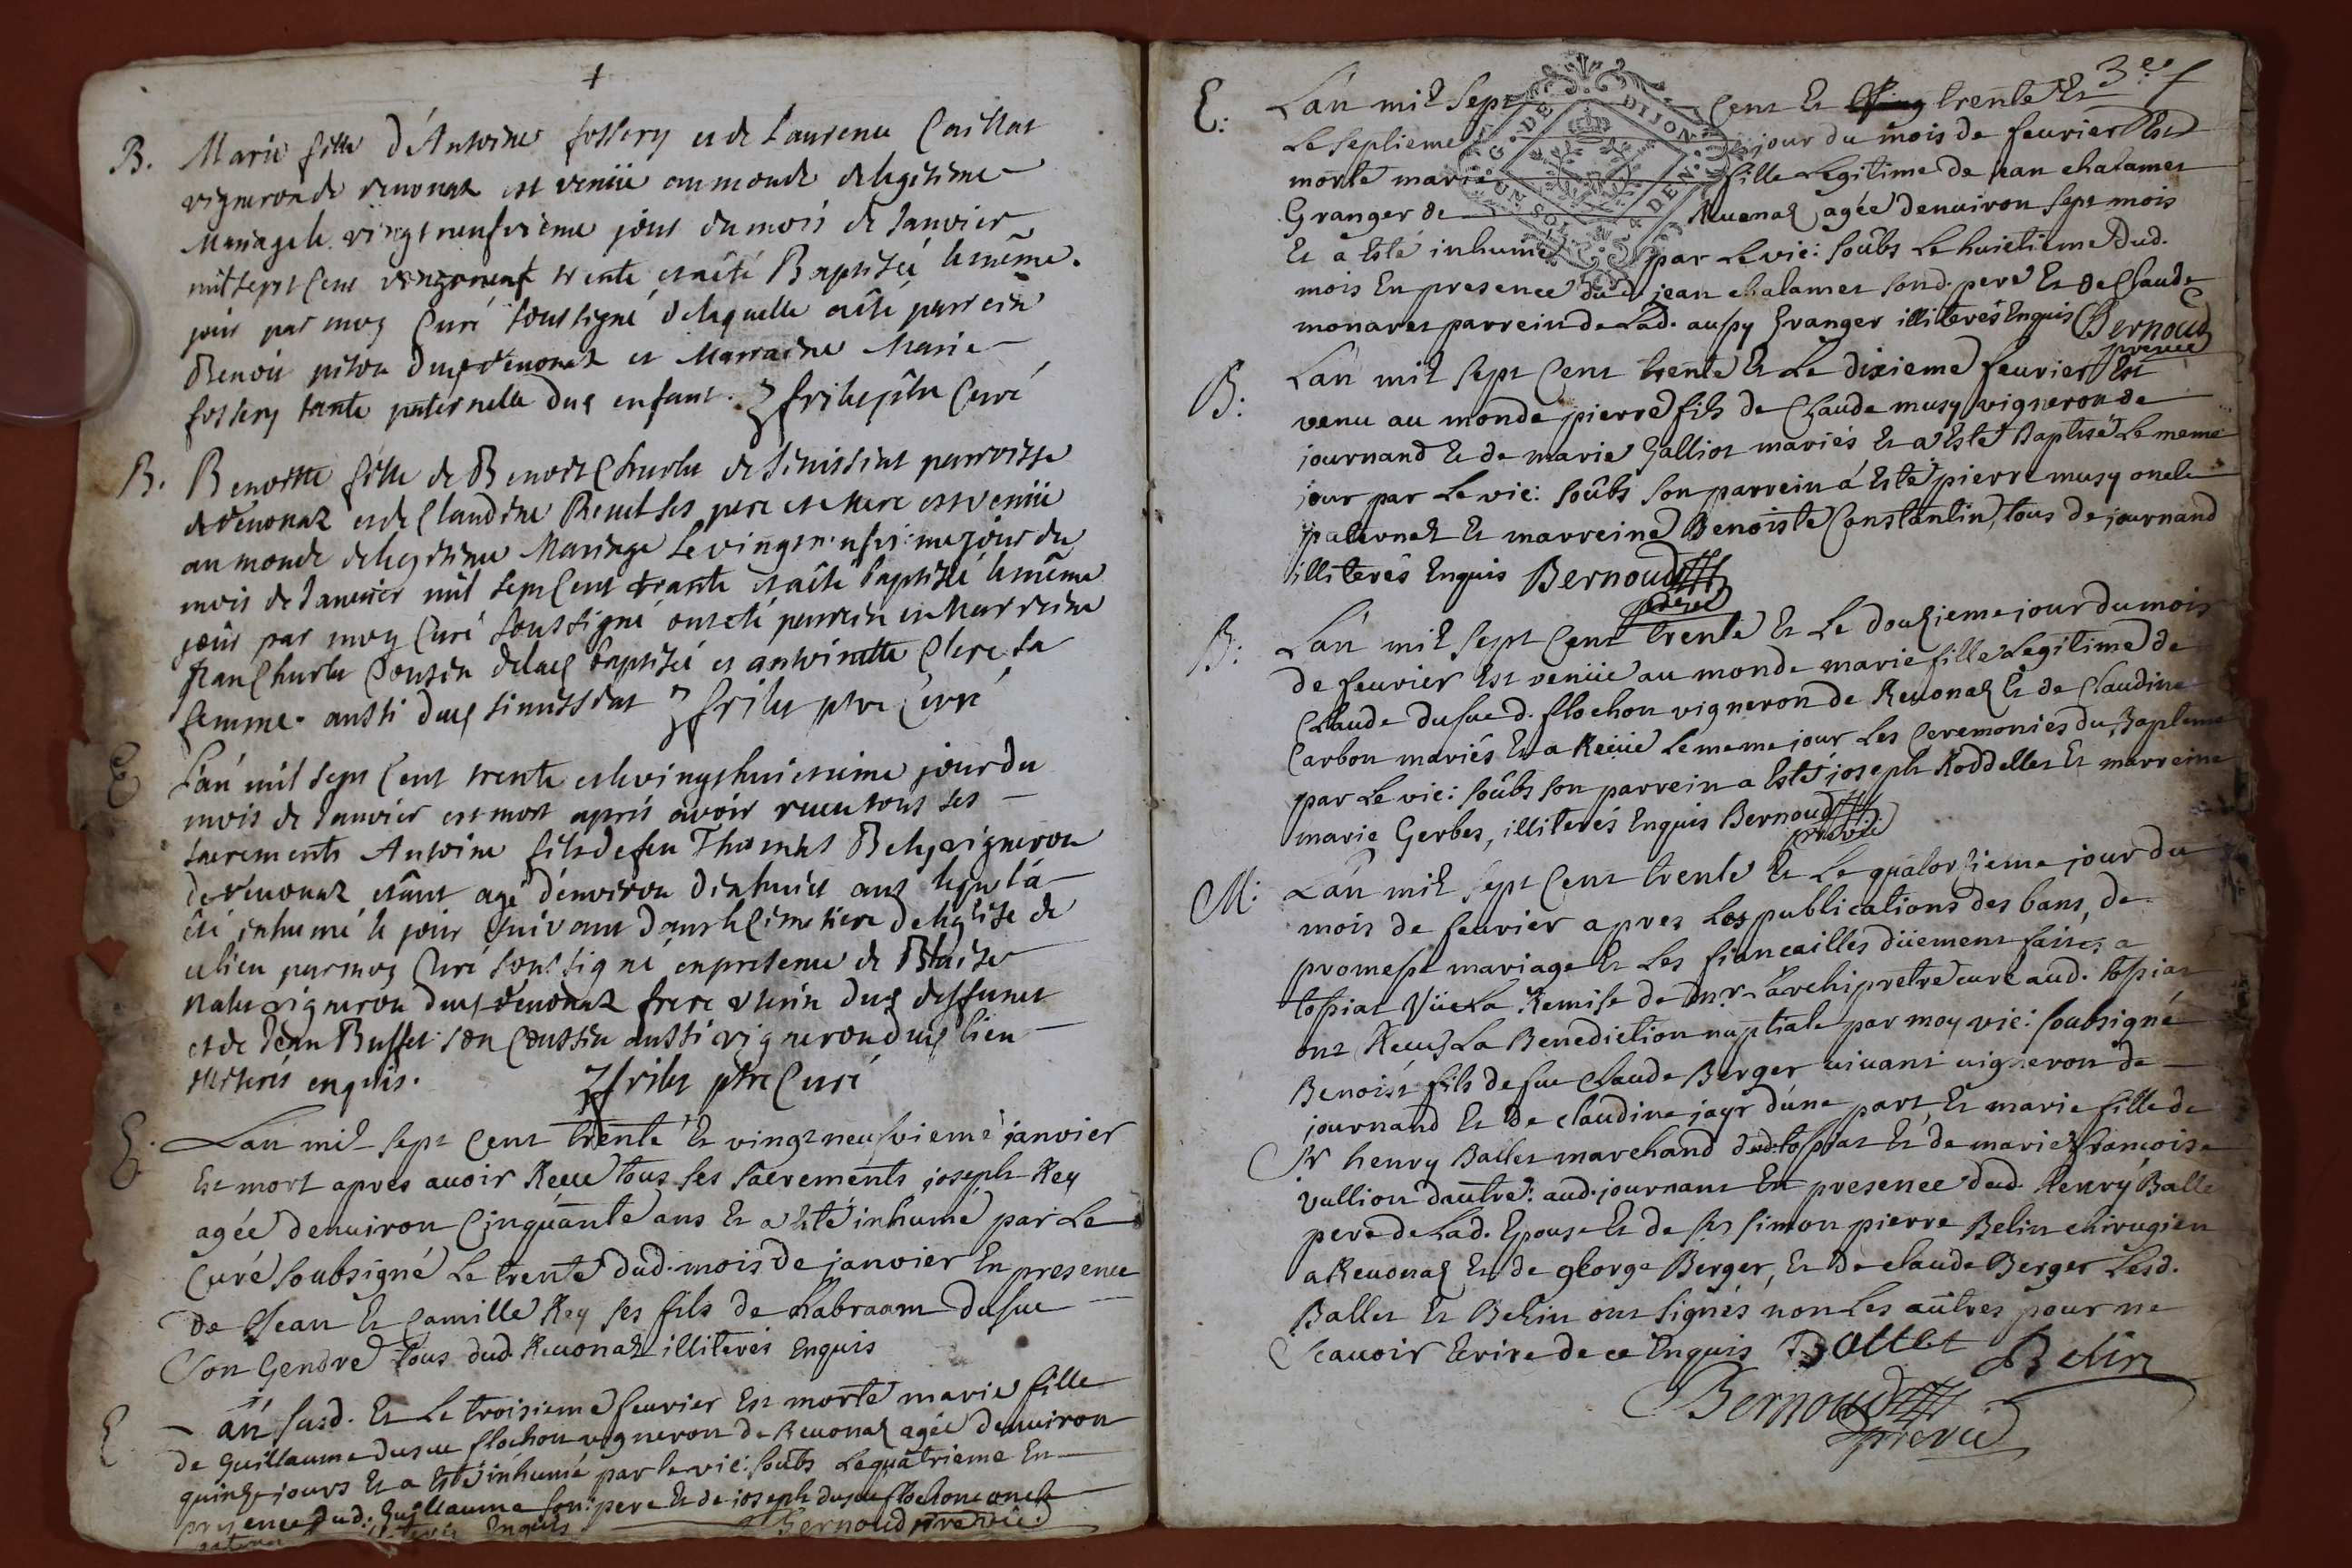 B. Marie fille d'Antoine fossery et de Laurence Caillat
vigneron de revonaz est venüe au monde de legitime
Mariage le vingt neufvieme jour du mois de Janvier
mil sept Cent vingt neuf trente et a été Baptisée le même
jour par moy Curé soussigné de laquelle a été parrein
Benoit piton dud revonaz et Marraine Marie
fossery tante paternelle dud enfant. ptre Curé
B. Benoitte fille de Benoit Charlet de Simissiat parroisse
de revonaz et de Claudine Revel ses pere et Mere est venüe
au monde de legitime Mariage le vingt neufvieme jour du
mois de Janvier mil sept Cent trante et a été baptisée le même
jour par moy Curé soussigné ont été parrein et Marreine
Jean Charlet Cousin de lad baptisée et antoinette Clere sa
femme aussi dud simissiat ptre Curé
E L'an mil sept Cent trente et le vingt huictieme jour du
mois de Janvier est mort après avoir receu tous ses
sacrements Antoine fils de feu Thomas Bely vigneron
de revonaz étant agé d'environ dixhuict ans lequel a
été inhumé le jour suivant dans le Cimetiere de leglise de
ce lieu par moy Curé soussigné en presence de Blaise
Nalet vigneron dud revonaz frere uterin dud deffunct
et de Jean Buffet son Coussin aussi vigneron dud lieu
illiterés enquis. ptre Curé
E. L'an mil sept Cent trente Et vingt neufvieme janvier
Est mort apres avoir Receu tous ses sacrements joseph Rey
agée denviron Cinquante ans Et a Esté inhumé par Le
Curé soubsigné Le trente dud. mois de janvier En presence
de Jean Et Camille Rey ses fils de Labraam dusuc
son Gendre tous dud. Revonaz illiterés Enquis
E L'an susd. Et Le troisieme fevrier Est morte marie fille
de Guillaume dusuc flochon vigneron de Revonaz agée denviron
quinze jours Et a Esté inhumé par le vic: soubs Le quatrieme En
presence dud. Guillaume son pere Et de joseph dusuc flochon oncle
Enquis Bernoud pre vic.
3e f
E: L'an mil sept Cent Et cinq trente Et
Le septieme jour du mois de fevrier Est
morte marie fille Legitime de jean chalamet
Granger de Revonaz agée denviron sept mois
Et a Esté inhumé par Le vic: soubs Le huictieme dud.
mois En presence dud jean chalamet sond. pere Et de Claude
monaret parrein de Lad. aussy Granger illiterés Enquis Bernoud
pre vic
B: L'an mil sept Cent trente Et Le dixieme fevrier Est
venu au monde pierre fils de Claude musy vigneron de
journand Et de marie Galliot mariés Et a Esté Baptisé Le meme
jour par Le vic: soubs son parrein a Esté pierre musy oncle
paternel Et marreine Benoiste Constantin, tous de journand
illiterés Enquis Bernoud
pre vic
B: L'an mil sept Cent trente Et Le douzieme jour du mois
de fevrier Est venüe au monde marie fille Legitime de
Claude dusuc d. flochon vigneron de Revonaz Et de Claudine
Carbon mariés Et a Reçüe Le meme jour Les Ceremonies du Bapteme
par Le vic: soubs son parrein a Esté joseph Roddelles Et marreine
marie Gerbes, illiterés Enquis Bernoud
pre vic
M: L'an mil sept Cent trente Et Le quatorzieme jour du
mois de fevrier apres Les publications des bans, de
promesse mariage Et Les fiancailles düement faites a
tossiat Vüe La Remise de Mr L'archipretre curé aud. tossiat
ont Receu La Benediction nuptiale par moy vic: soubsigné
Benoist fils de feu Claude Berger vivant vigneron de
journand Et de claudine jayr d'une part, Et marie fille de
Sr henry Ballet marchand dud. tossiat Et de marie francoise
Vullion d'autre: aud. journant En presence dud. henry Balle
pere de Lad. Epouse Et de Srs simon pierre Belin chirugien
a Revonaz Et de george Berger, Et de claude Berger Lesd.
Ballet Et Belin ont signés non Les autres pour ne
scavoir Ecrire de ce Enquis Ballet Belin
Bernoud
pre vic
G. DE DIJON
UN SOL 4 DEN.